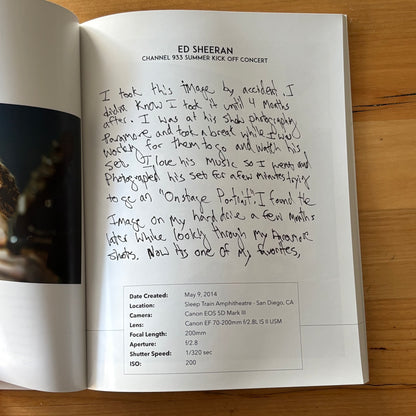 ED SHEERAN
CHANNEL 933 SUMMER KICK OFF CONCERT
I took this image by accident. I
didnt know I took it until 4 months
after. I was at his show photographing
Paramore and took a break while I was
working for them to go and watch his
set. I love his music so I went and
Photographed his set for a few minutes trying
to go an "Onstage Portrait". I found the
Image on my hard drive a few months
later while looking through my Paramore
shots. Now its one of my favorites.
Date Created: May 9, 2014
Location: Sleep Train Amphitheatre - San Diego, CA
Camera: Canon EOS 5D Mark III
Lens: Canon EF 70-200mm f/2.8L IS II USM
Focal Length: 200mm
Aperture: f/2.8
Shutter Speed: 1/320 sec
ISO: 200